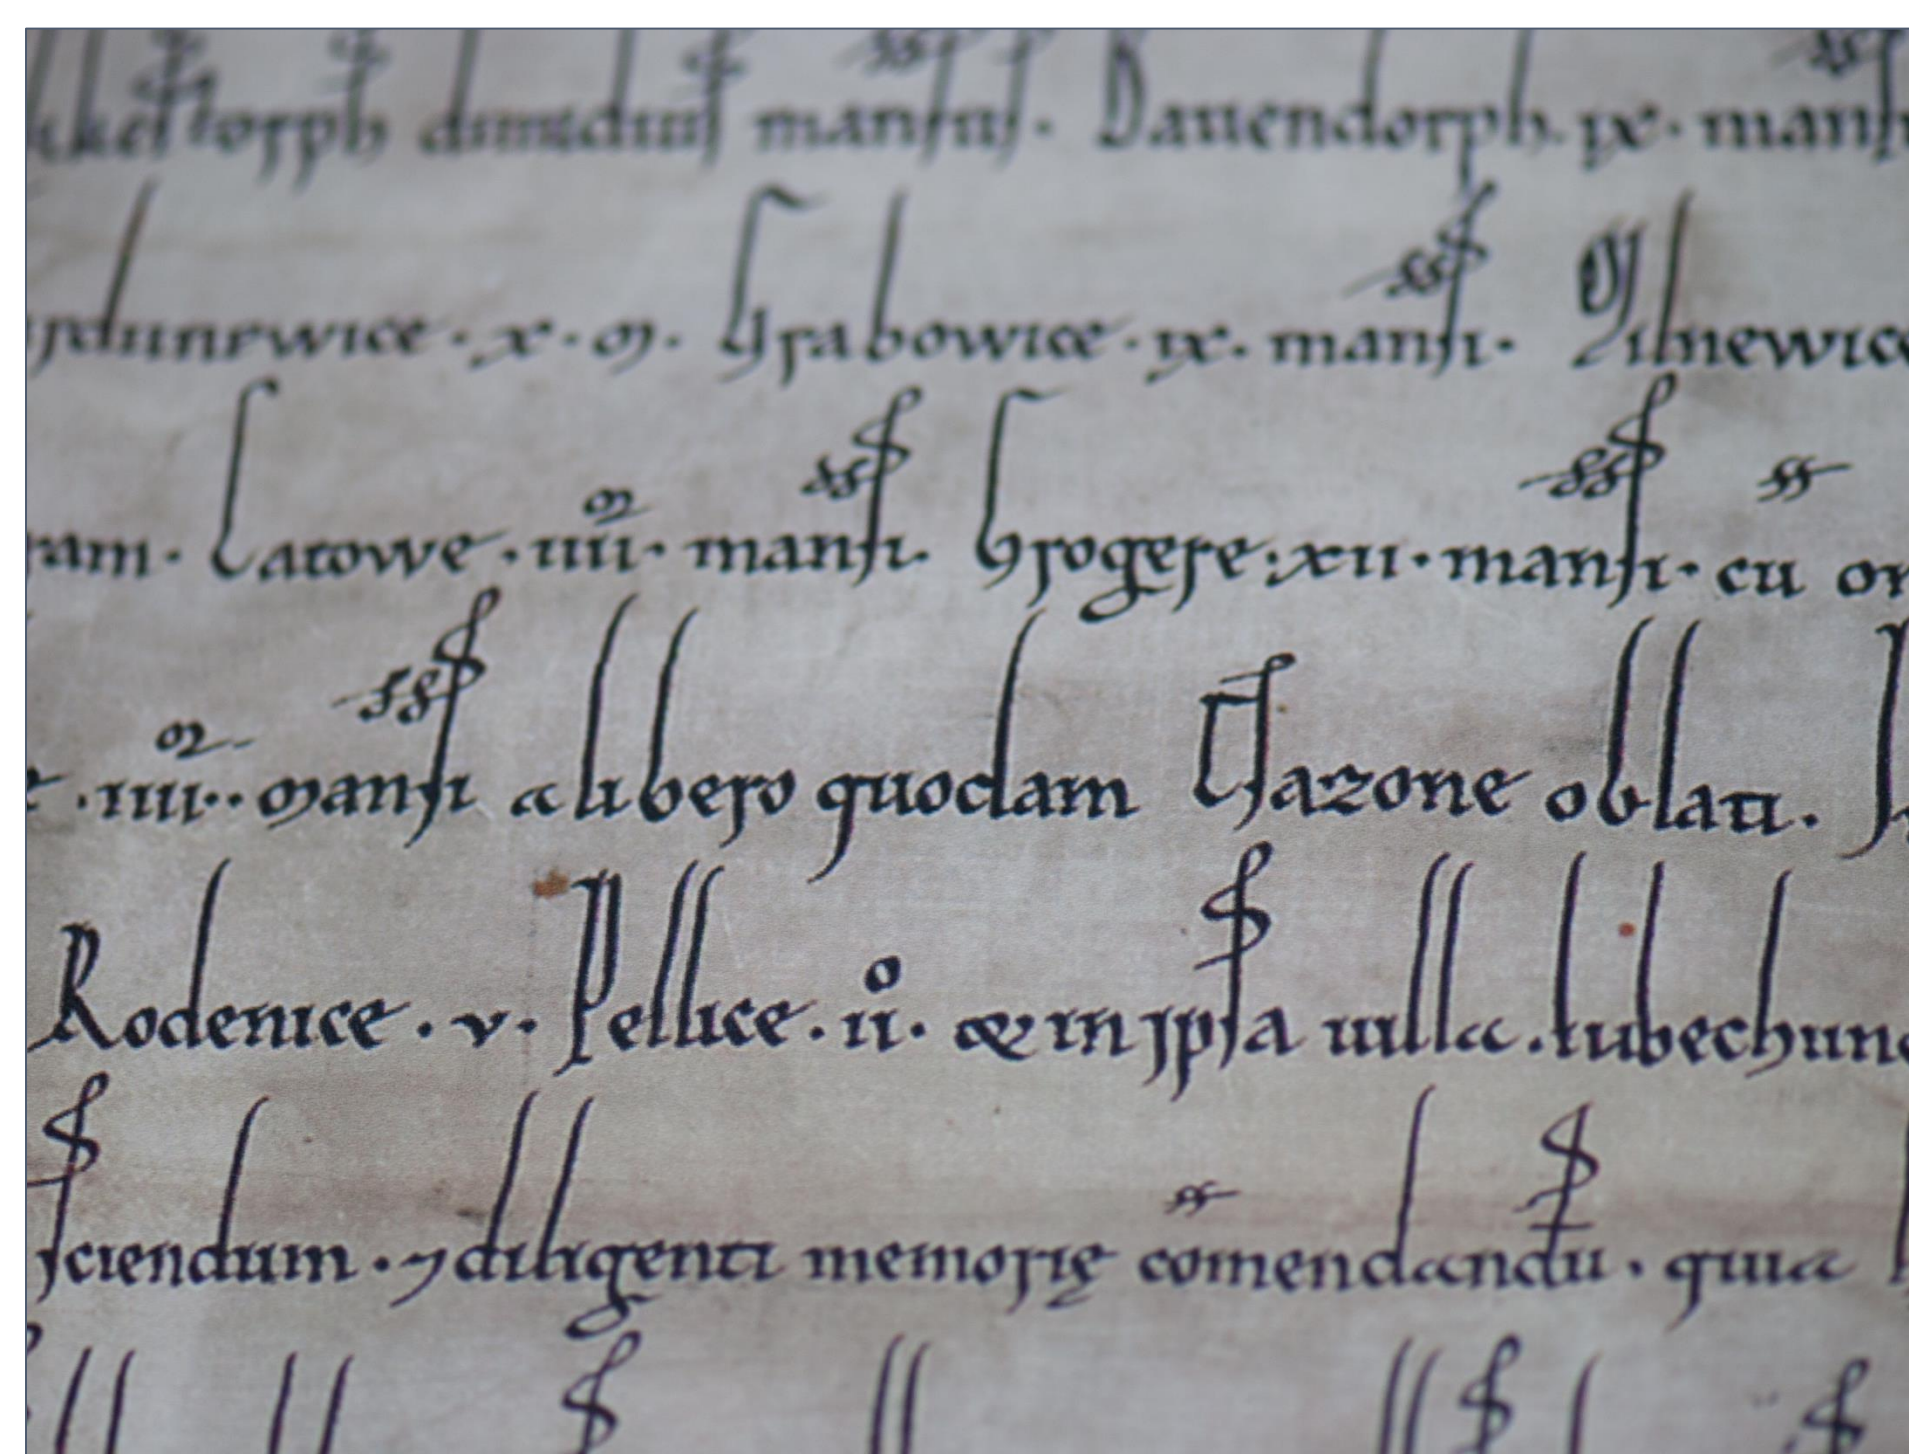 dimidius mansus. Dauendorph. ix. mansi
Grabowice. ix. mansi.
Latowe. iiii. mansi. Grogere. xii. mansi. cu
iiii. mansi a libero quodam Thazone oblati.
Rodenice. v. Pellice. ii. & in ipsa uilla. lubechun
sciendum. ⁊ diligenti memorię comendandu. quia